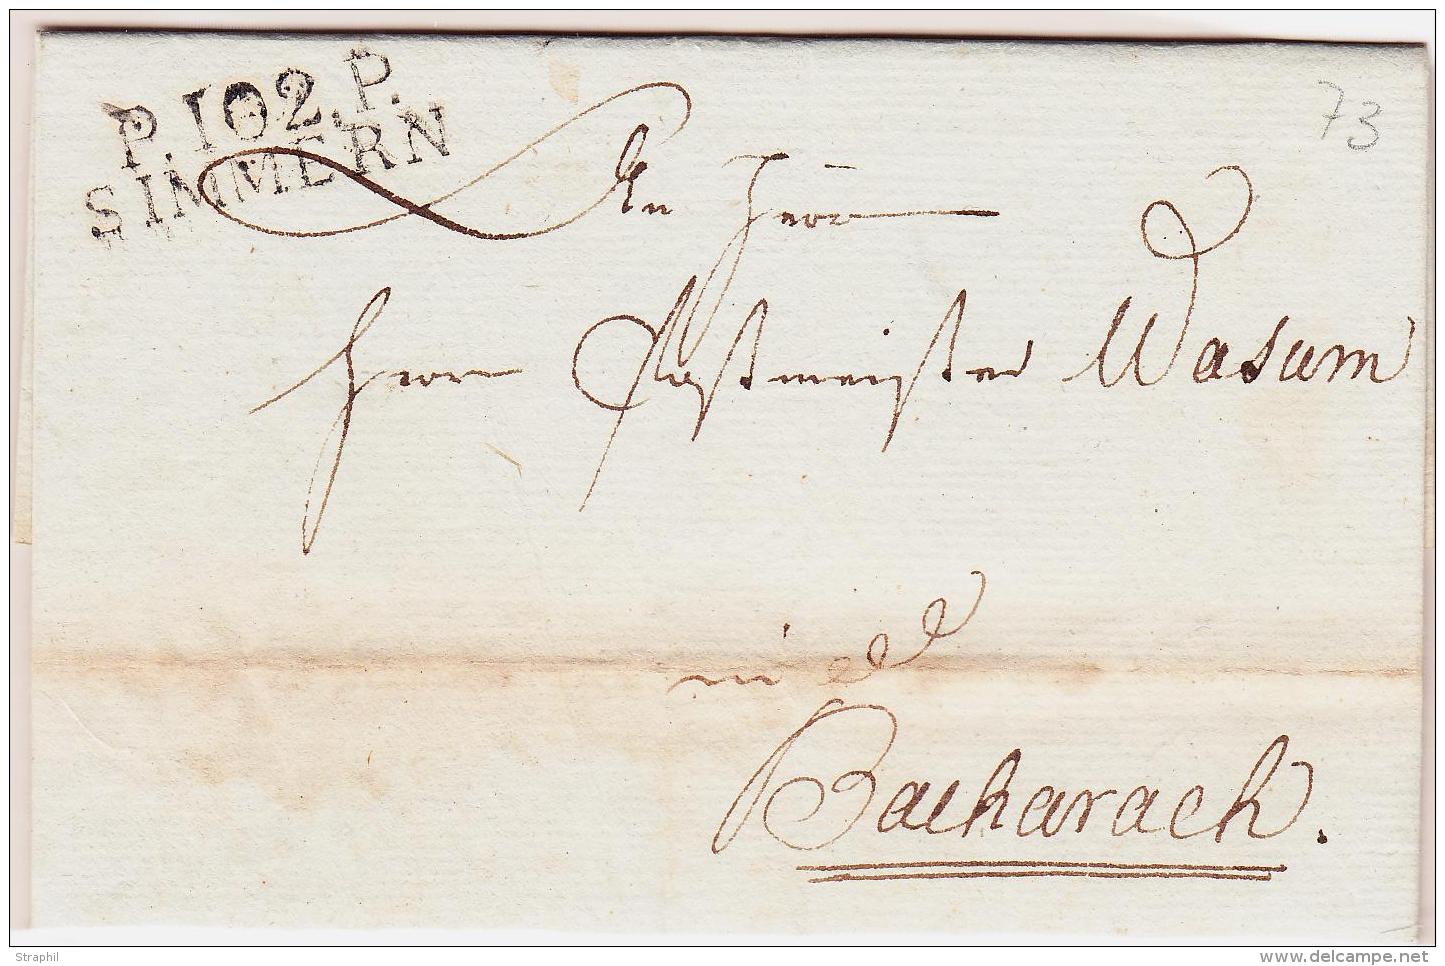 P.102.P.
SIMMERN
73
An Herrn
Herrn Postmeister Wasum
in
Bacharach.
Straphil
www.delcampe.net